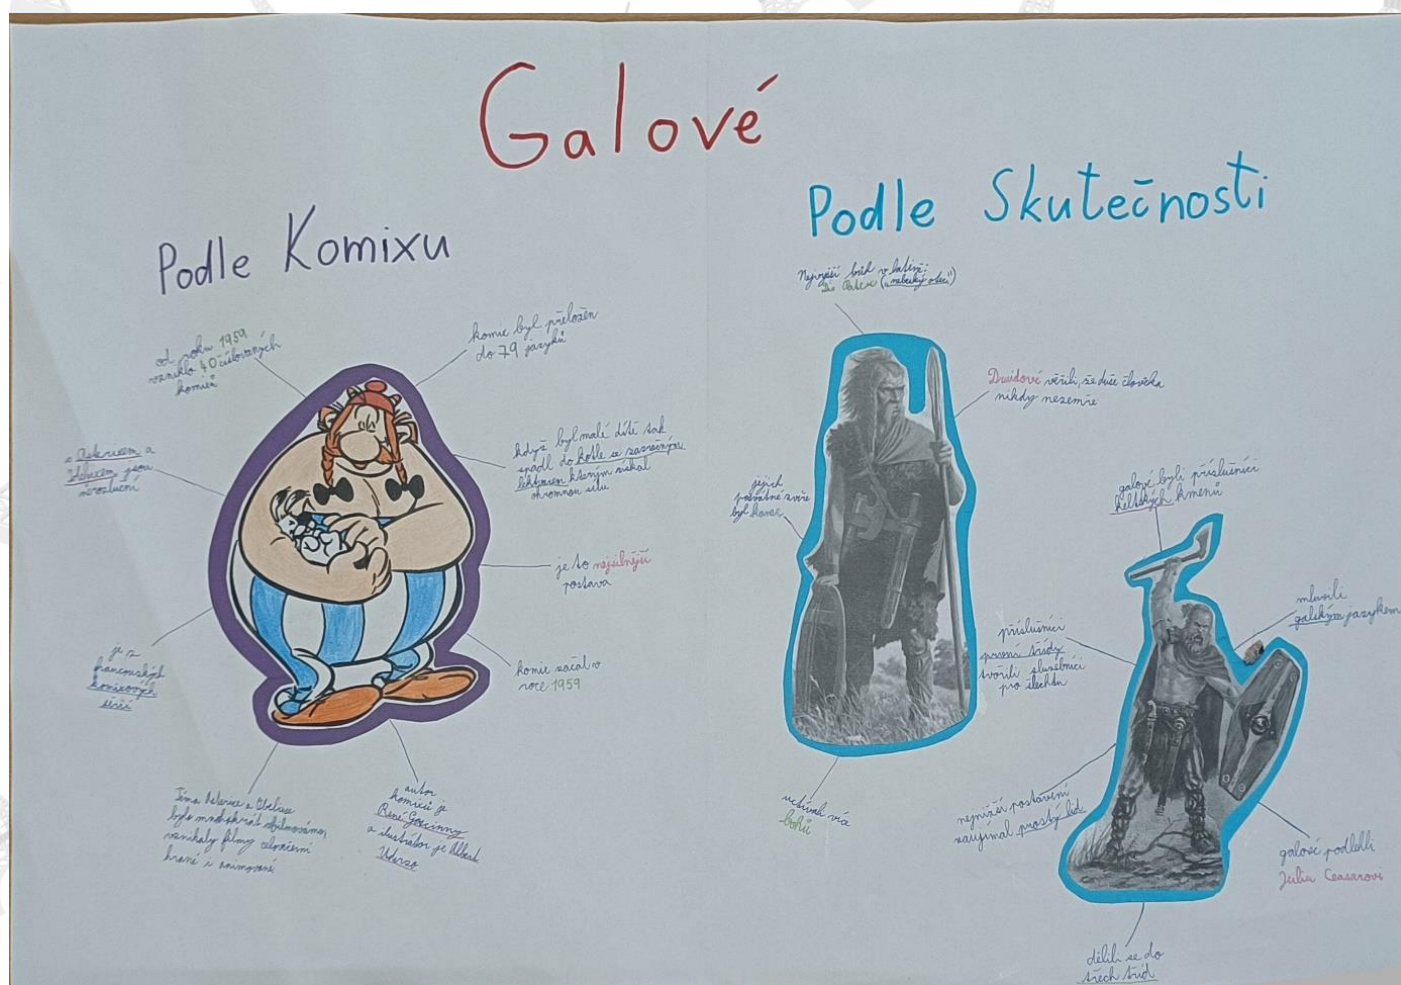 Galové
Podle Komixu
od roku 1959
vzniklo 40 číslovaných
komixů
komix byl přeložen
do 79 jazyků
s Asterixem a
jsou
nerozluční
když byl malé dítě tak
spadl do kotle se zázračným
lektvarem kterým získal
ohromnou sílu
je to nejsilnější
postava
je z
francouzských
komixových
sérií
komix začal v
roce 1959
Téma Asterixe a Obelixe
bylo mnohokrát zfilmováno,
vznikaly filmy celovečerní
hrané i animované
autor
komixů je
René Goscinny
a ilustrátor je Albert
Uderzo
Podle Skutečnosti
Nejvyšší bůh v latině:
Dis Pater („nebeský otec“)
Druidové věřili, že duše člověka
nikdy nezemře
jejich
posvátné zvíře
byl kanec
galové byli příslušníci
keltských kmenů
mluvili
galským jazykem
příslušníci
první třídy
tvořili služebníci
pro šlechtu
uctívali
bohů
nejnižší postavení
zaujímal prostý lid
galové podlehli
Juliu Ceasarovi
dělili se do
třech tříd